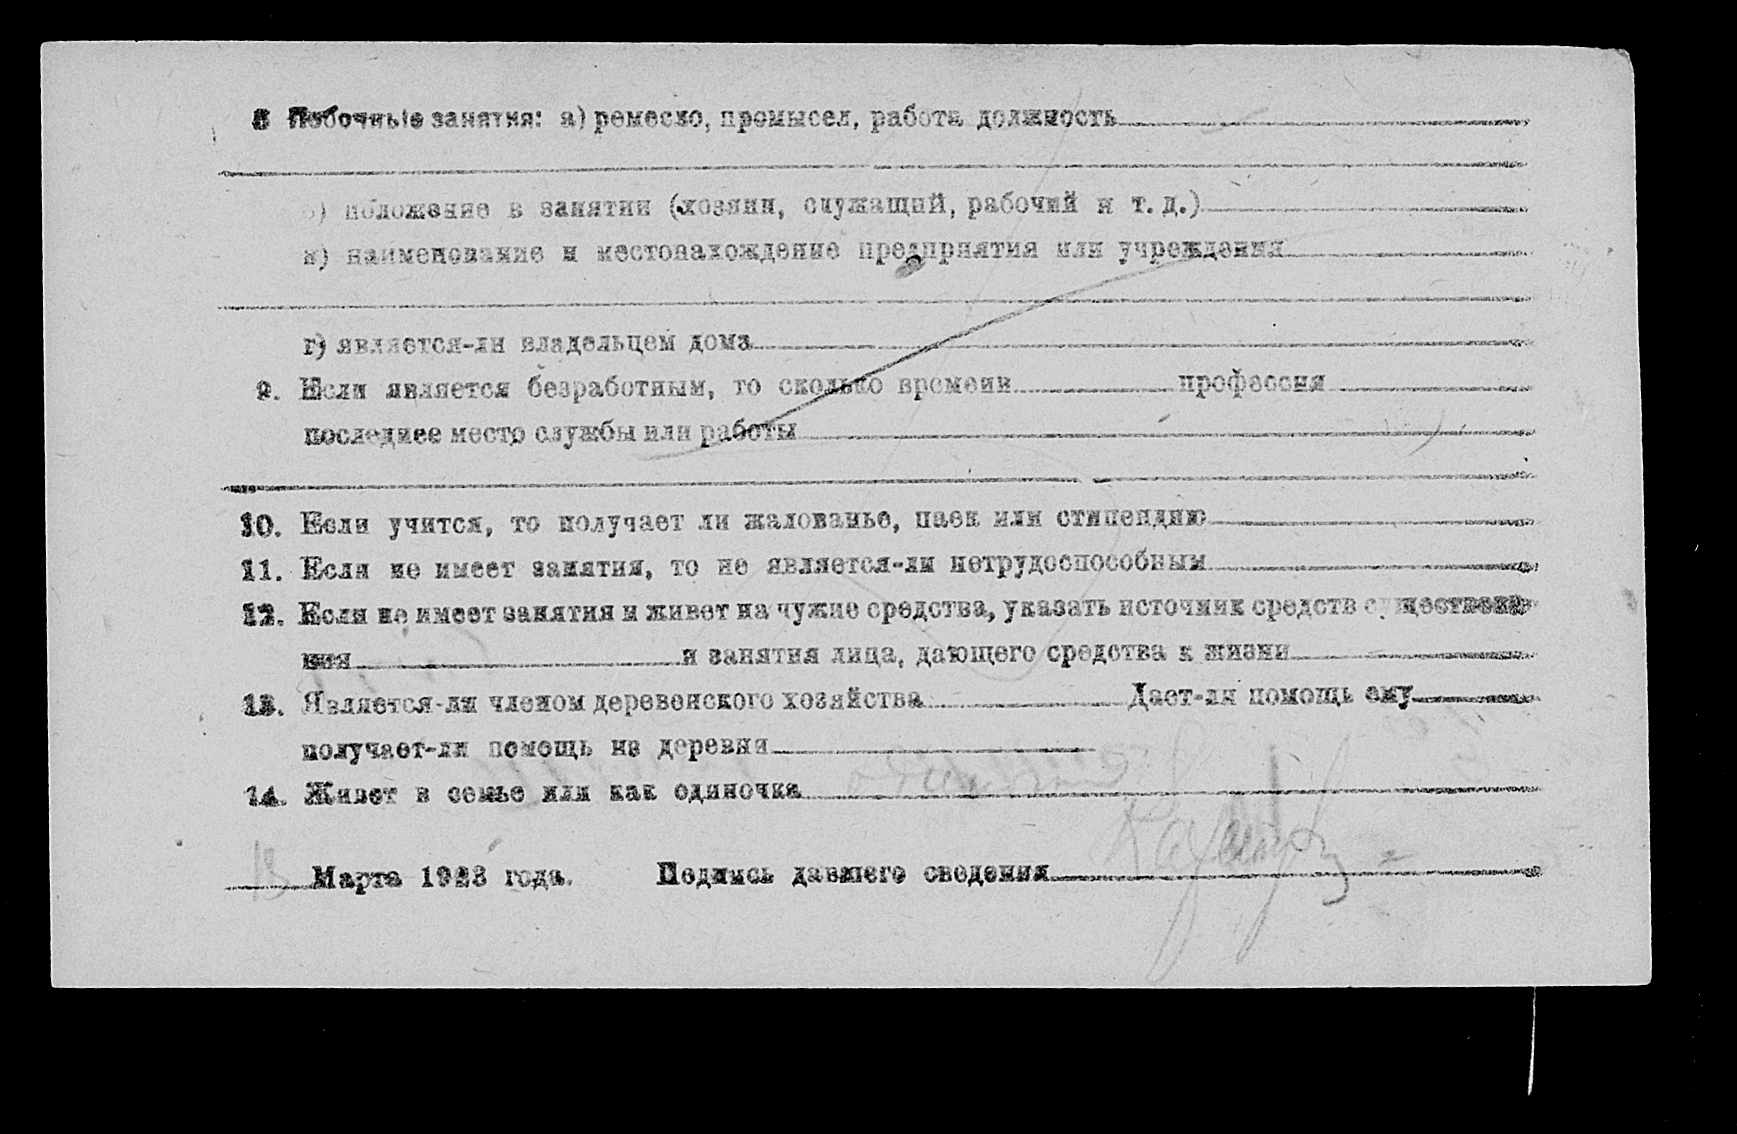 8 Побочные занятия: а) ремесло, промысел, работа должность
б) положение в занятии (хозяин, служащий, рабочий и т. д.)
в) наименование и местонахождение предприятия или учреждения
г) является-ли владельцем дома
9. Если является безработным, то сколько времени профессия
последнее место службы или работы
10. Если учится, то получает ли жалованье, паек или стипендию
11. Если не имеет занятия, то не является-ли нетрудоспособным
12. Если не имеет занятия и живет на чужие средства, указать источник средств существова
ния и занятия лица, дающего средства к жизни
13. Является-ли членом деревенского хозяйства Дает-ли помощь ему
получает-ли помощь из деревни
14. Живет в семье или как одиночка
Марта 1923 года. Подпись давшего сведения